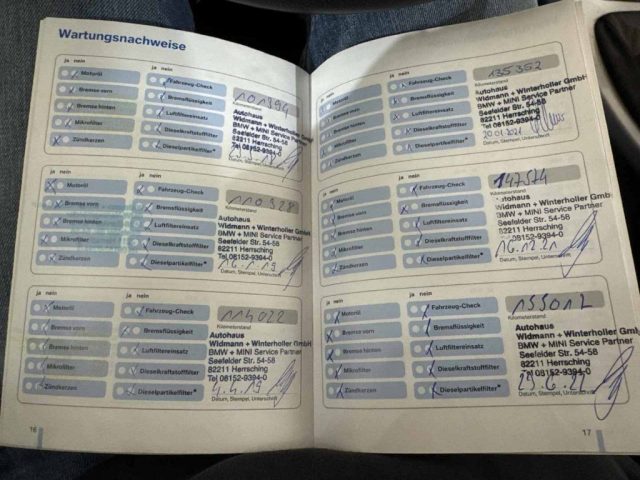 Wartungsnachweise
ja nein
Motoröl
Bremse vorn
Bremse hinten
Mikrofilter
Zündkerzen
ja nein
Fahrzeug-Check
Bremsflüssigkeit
Luftfiltereinsatz
Dieselkraftstofffilter
Dieselpartikelfilter*
101394
Kilometerstand
Autohaus
Widmann + Winterholler GmbH
BMW + MINI Service Partner
Seefelder Str. 54-58
82211 Herrsching
Tel 08152-9394-0
ja nein
Motoröl
Bremse vorn
Bremse hinten
Mikrofilter
Zündkerzen
ja nein
Fahrzeug-Check
Bremsflüssigkeit
Luftfiltereinsatz
Dieselkraftstofffilter
Dieselpartikelfilter*
110328
Kilometerstand
Autohaus
Widmann + Winterholler GmbH
BMW + MINI Service Partner
Seefelder Str. 54-58
82211 Herrsching
Tel 08152-9394-0
16.1.19
Datum, Stempel, Unterschrift
ja nein
Motoröl
Bremse vorn
Bremse hinten
Mikrofilter
Zündkerzen
ja nein
Fahrzeug-Check
Bremsflüssigkeit
Luftfiltereinsatz
Dieselkraftstofffilter
Dieselpartikelfilter*
114022
Kilometerstand
Autohaus
Widmann + Winterholler GmbH
BMW + MINI Service Partner
Seefelder Str. 54-58
82211 Herrsching
Tel 08152-9394-0
4.4.19
Datum, Stempel, Unterschrift
16
ja nein
Motoröl
Bremse vorn
Bremse hinten
Mikrofilter
Zündkerzen
ja nein
Fahrzeug-Check
Bremsflüssigkeit
Luftfiltereinsatz
Dieselkraftstofffilter
Dieselpartikelfilter*
135352
Autohaus
Widmann + Winterholler GmbH
BMW + MINI Service Partner
Seefelder Str. 54-58
82211 Herrsching
Tel 08152-9394-0
20.01.2021
ja nein
Motoröl
Bremse vorn
Bremse hinten
Mikrofilter
Zündkerzen
ja nein
Fahrzeug-Check
Bremsflüssigkeit
Luftfiltereinsatz
Dieselkraftstofffilter
Dieselpartikelfilter*
147574
Autohaus
Widmann + Winterholler GmbH
BMW + MINI Service Partner
Seefelder Str. 54-58
82211 Herrsching
Tel 08152-9394-0
16.12.21
Datum, Stempel, Unterschrift
ja nein
Motoröl
Bremse vorn
Bremse hinten
Mikrofilter
Zündkerzen
ja nein
Fahrzeug-Check
Bremsflüssigkeit
Luftfiltereinsatz
Dieselkraftstofffilter
Dieselpartikelfilter*
155012
Kilometerstand
Autohaus
Widmann + Winterholler GmbH
BMW + MINI Service Partner
Seefelder Str. 54-58
82211 Herrsching
Tel 08152-9394-0
Datum, Stempel, Unterschrift
17